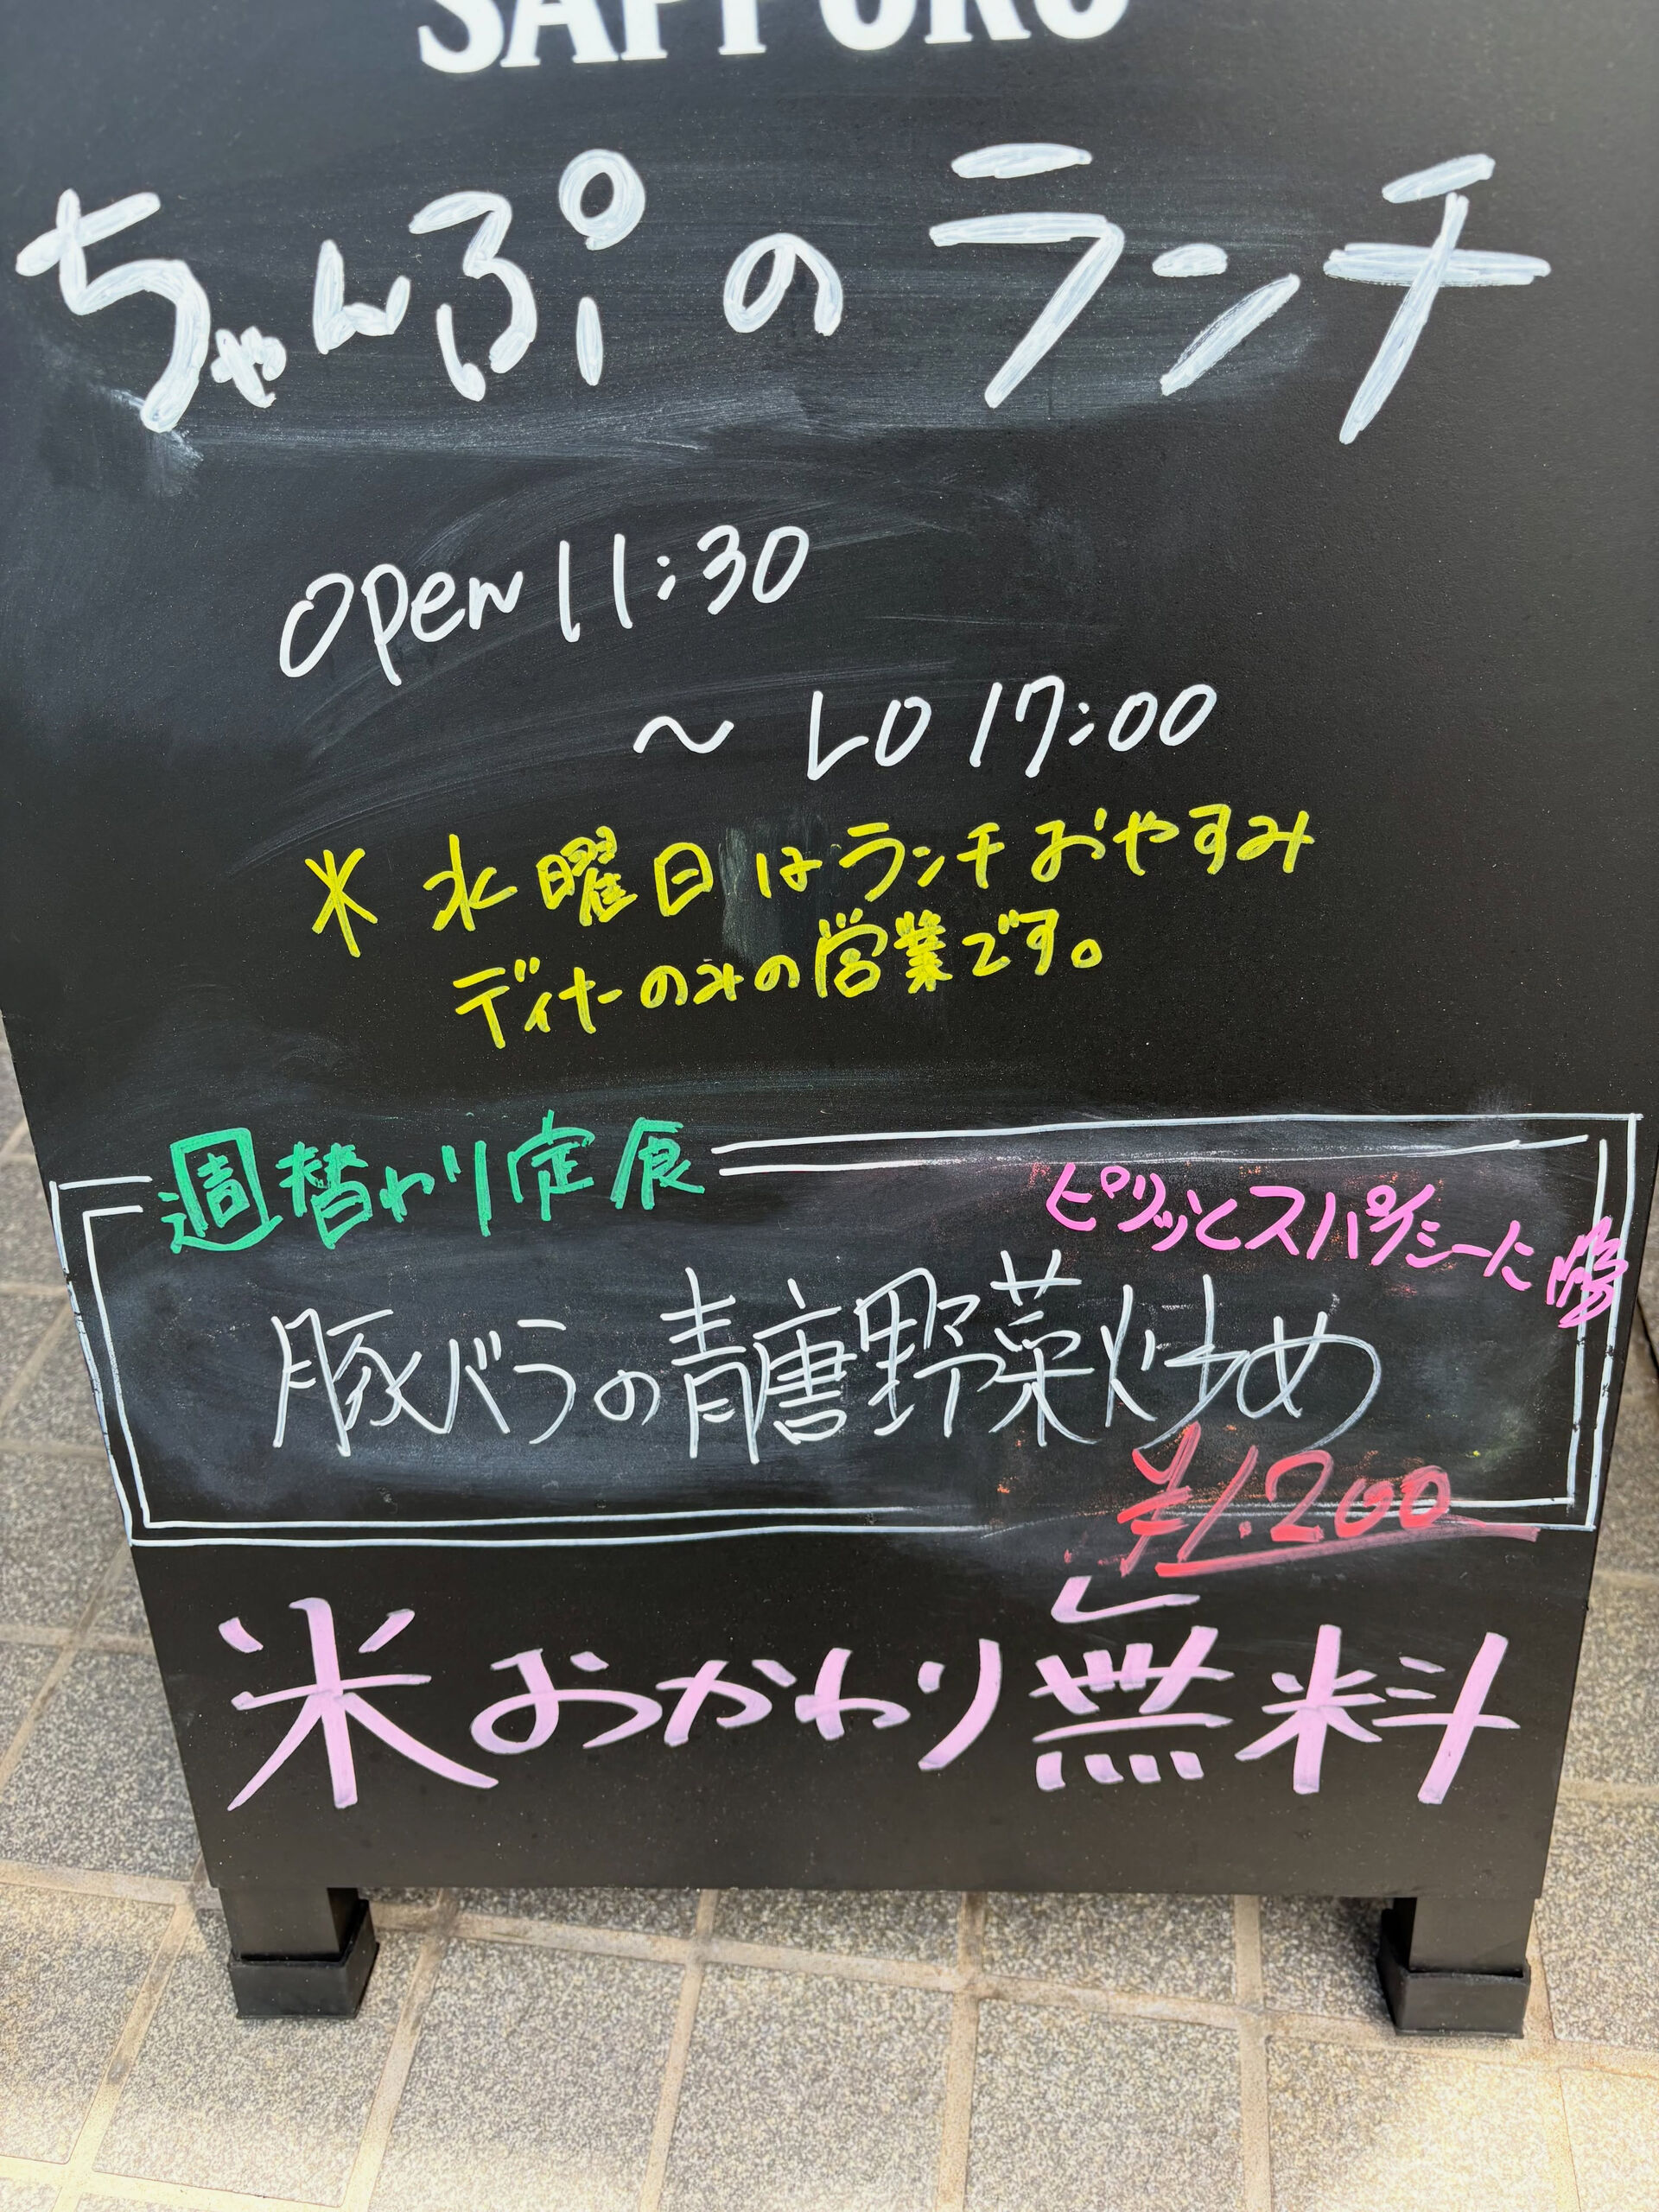 SAPPORO
ちゃんぷのランチ
open 11:30
~ LO 17:00
* 水曜日はランチおやすみ
ディナーのみの営業です。
週替わり定食
ピリッとスパイシーに
豚バラの青唐野菜炒め
¥1.200
米おかわり無料